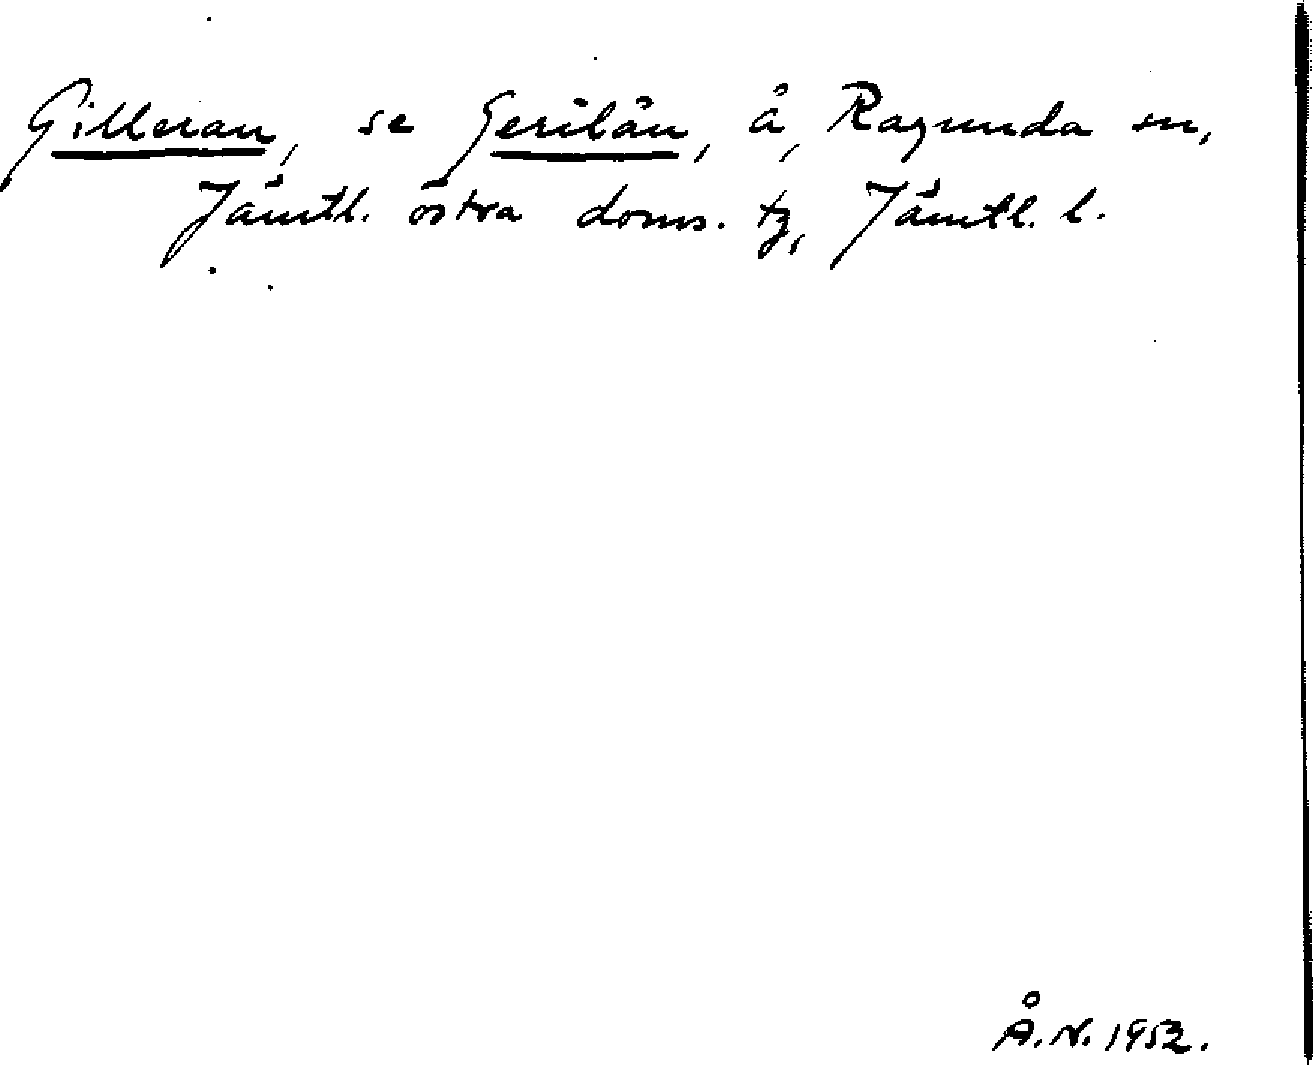 Gilleran, se Gerilån, å, Ragunda sn,
Jämtl. östra doms. tg, Jämtl. l.
Å.N. 1952.